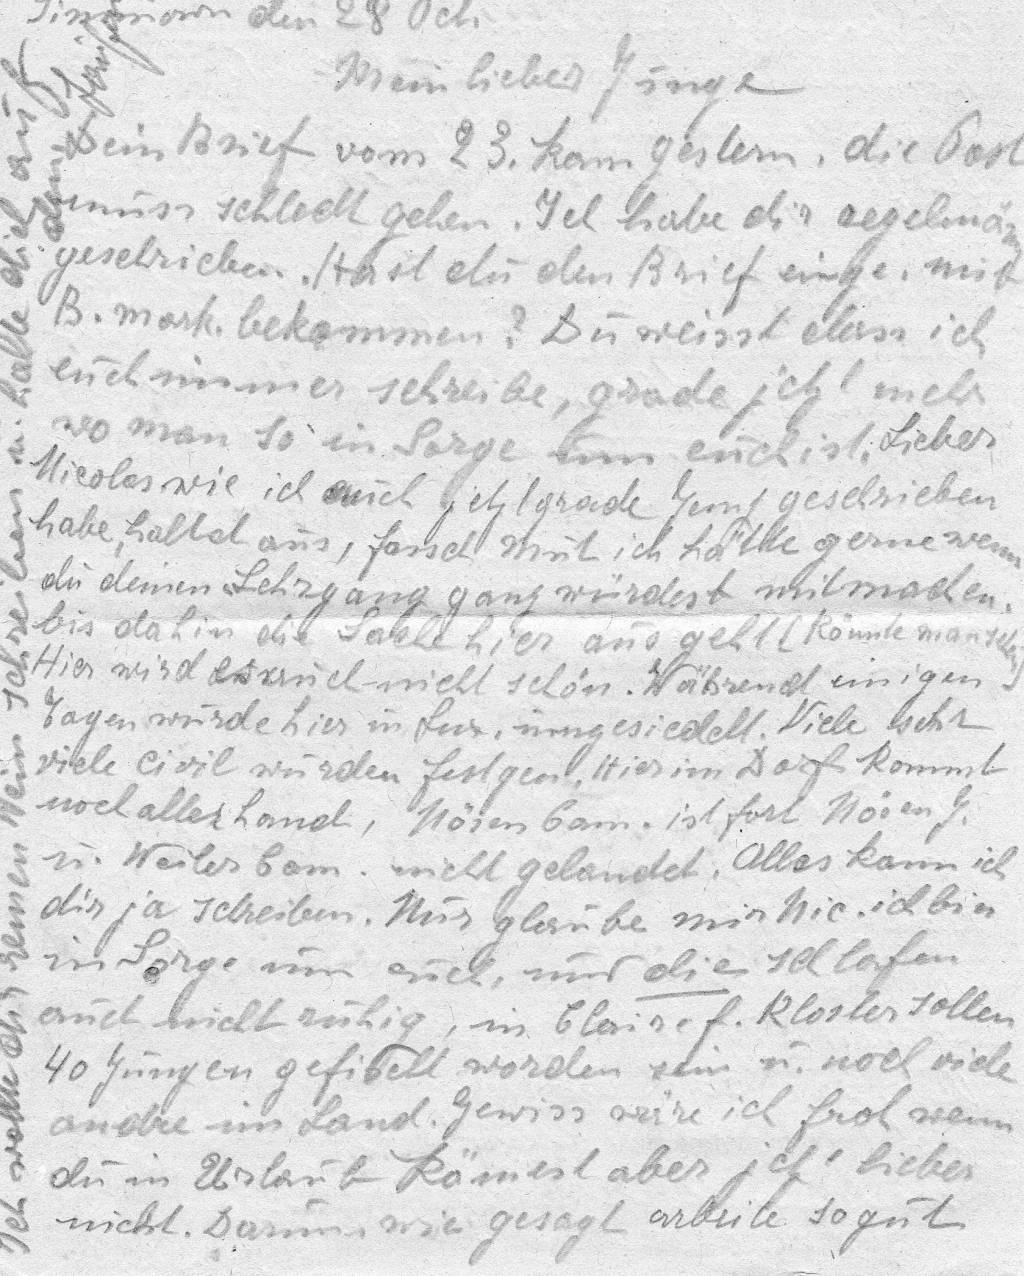 den 28 Oct.
Mein lieber Junge
Dein Brief vom 23. kam gestern. die Post
muss schlecht gehen. Ich habe dir regelmäs
geschrieben. Hast du den Brief einge. mit
B. mark. bekommen? Du weisst dass ich
euch immer schreibe, grade jetzt mehr
wo man so in Sorge um euch ist. Lieber
Nicolas wie ich auch jetzt grade Jung geschrieben
habe, haltet aus, fasset mut ich hätte gerne wenn
du deinen Lehrgang ganz würdest mitmachen.
bis dahin die Sache hier aus geht (könnte man
Hier wird es auch nicht schön. Während einigen
Tagen wurde hier in Lux. umgesiedelt. Viele sehr
viele Civil wurden festgen. Hier im Dorf kommt
noch allerhand, Nösen Cam. ist fort Nösen J.
u. Weiler Cam. nicht gelandet. Alles kann ich
dir ja schreiben. Nur glaube mir Nic. ich bin
in Sorge um euch, und die schlafen
auch nicht ruhig, in Clairef. Kloster sollen
40 Jungen gefischt worden sein u. noch viele
andre im Land. Gewiss wäre ich froh wenn
du in Urlaub kämest aber jetzt lieber
nicht. Darum wie gesagt arbeite so gut
Ich wollte dir reinen Wein schreiben u. halte dich auf